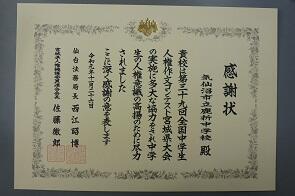 感謝状
気仙沼市立鹿折中学校 殿
貴校は第三十九回全国中学生
人権作文コンテスト宮城県大会
の実施に多大な協力をされ中学
生の人権意識の高揚のために尽力
されました
ここに深く感謝の意を表します
令和元年十二月二十六日
仙台法務局長 西江昭博
宮城県人権擁護委員連合会長 佐藤徹郎